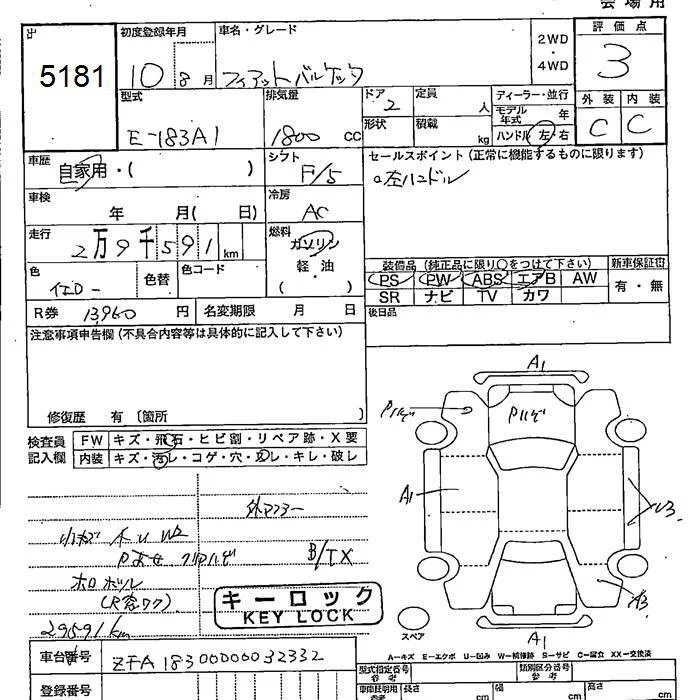 会場用
出
5181
初度登録年月
10 8月
車名・グレード
フィアットバルケッタ
2WD
・
4WD
評価点
3
外装 内装
C C
型式
E-183A1
排気量
1800 cc
ドア
2
定員
人
形状
積載
kg
ディーラー・並行
モデル年式 年
ハンドル 左・右
車歴
自家用・( )
シフト
F/5
セールスポイント (正常に機能するものに限ります)
左ハンドル
車検
年 月( 日)
冷房
AC
走行
2万9千591km
燃料
ガソリン
軽・油
( )
装備品 (純正品に限り○をつけて下さい)
PS PW ABS エアB AW
SR ナビ TV カワ
新車保証書
有・無
色
イエロー
色替
色コード
R券 13960 円
名変期限 月 日
後日品
注意事項申告欄 (不具合内容等は具体的に記入して下さい)
修復歴 有 〔箇所 〕
検査員
記入欄
FW キズ・飛石・ヒビ割・リペア跡・X要
内装 キズ・汚レ・コゲ・穴・スレ・キレ・破レ
A1
Pハゲ
Pハゲ
A1
U3
A3
A1
スペア
外マフラー
小キズ
W2
B/TX
29591km
キーロック
KEY LOCK
A-キズ E-エクボ U-凹み W-補修跡 S-サビ C-腐食 XX-交換済
車台番号 ZFA18300000032332
登録番号
型式指定番号
参考
類別区分番号
参考
車庫証明用
参考
長さ cm
幅 cm
高さ cm